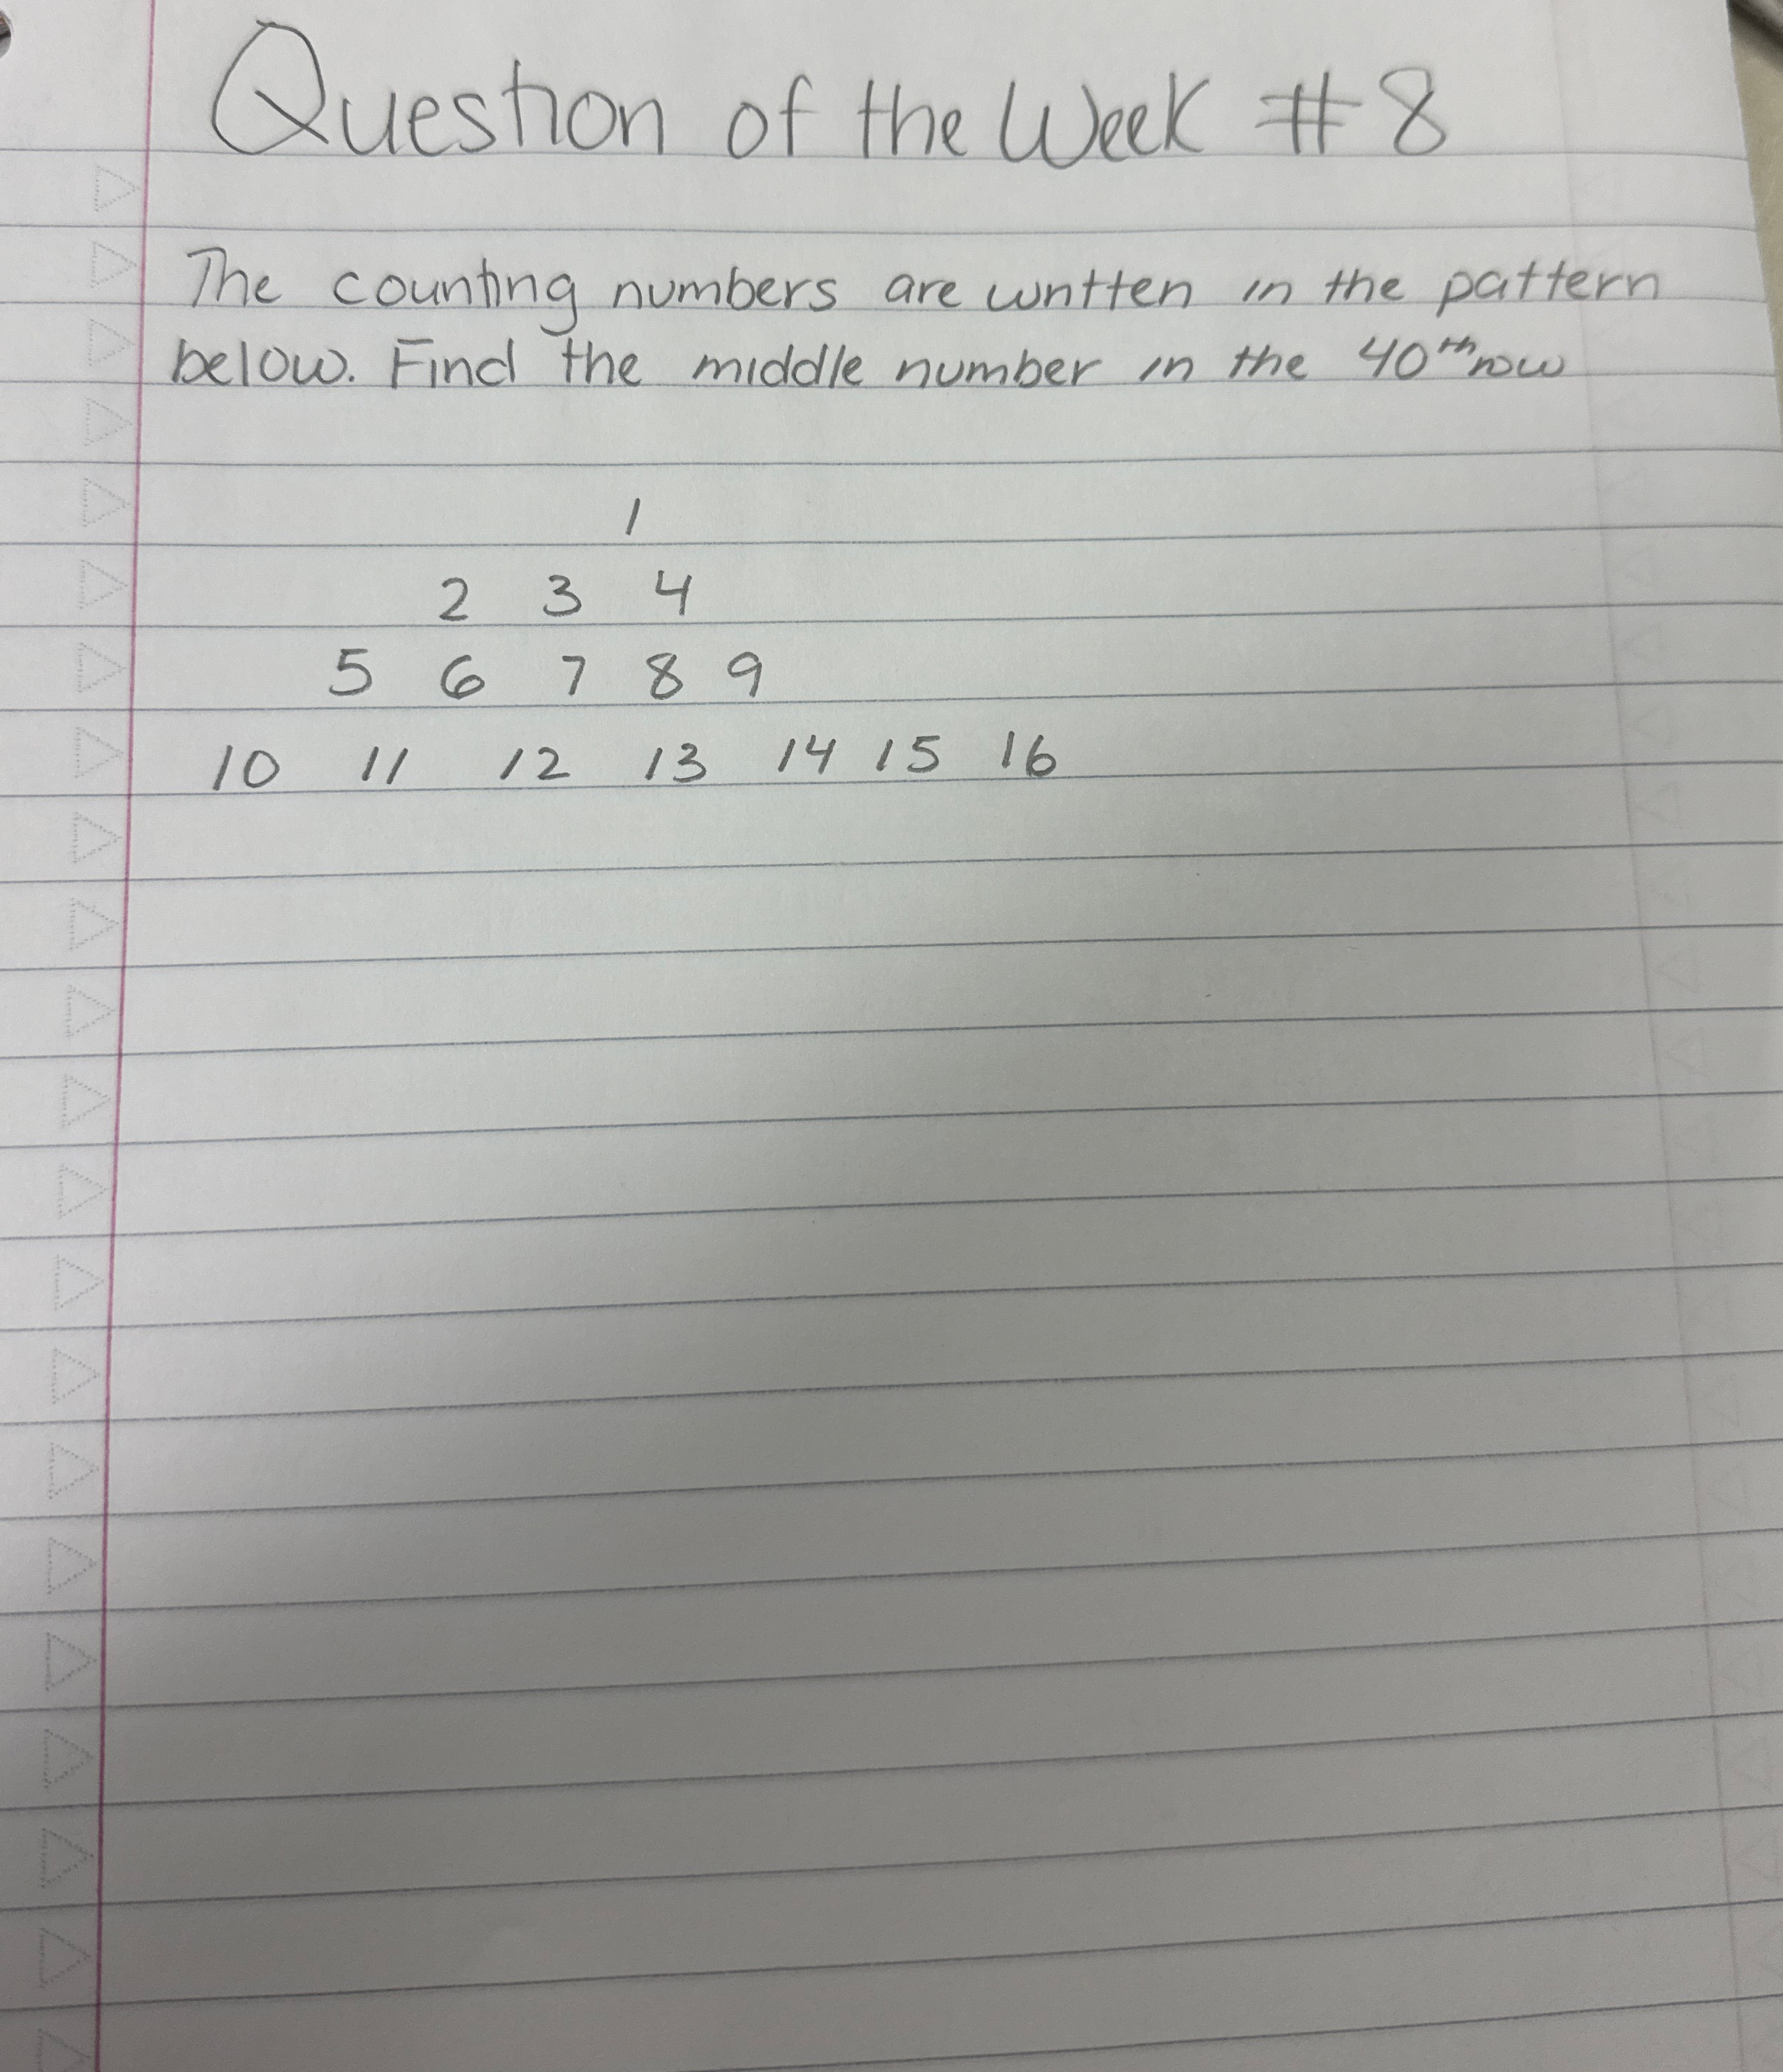 Question of the Week #8
The counting numbers are written in the pattern
below. Find the middle number in the 40th row
1
2 3 4
5 6 7 8 9
10 11 12 13 14 15 16